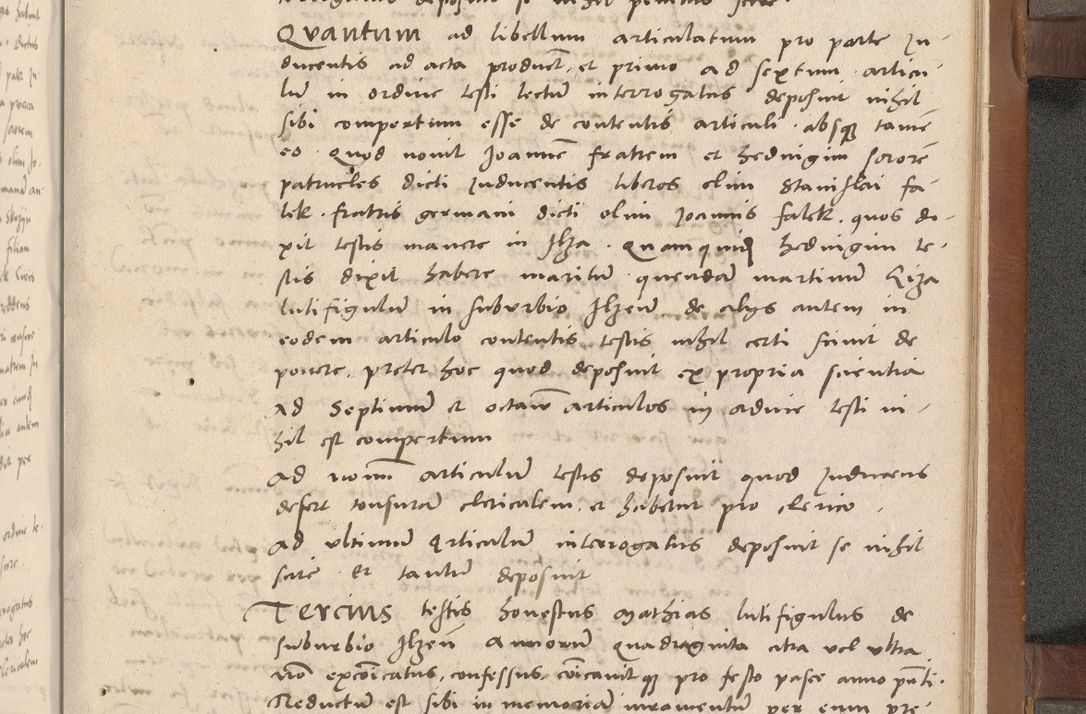 Quantum ad libellum articulatum pro parte In-
ducentis ad acta product. et primo ad sextum articu-
lum in ordine testi lectum interrogatus deposuit nihil
sibi compertum esse de contentis articuli. absque tamen
eo. Quod novit Joannem fratrem et Hedvigim sororem
patrueles dicti Inducentis liberos olim Stanislai Fa-
lek. fratris germani dicti olim Joannis Falek. quos di-
xit testis manere in Ilza. Quamquidem Hedvigim te-
stis dixit habere maritum quendam Martinum Liza
lutifigulum in suburbio Ilzen̄ de alys autem in
eodem articulo contentis testis nihil certi scivit de
ponere, preter hoc quod deposuit ex propria scientia
Ad Septimum et octavum articulos in ordine testi ni-
hil est compertum
Ad nonum articulum testis deposuit quod Inducens
defert tonsuram clericalem. et habetur pro clerico.
Ad ultimum Articulum interrogatus deposuit se nihil
scire. Et tantum deposuit
Tercius testis honestus Mathias lutifigulus de
suburbio Ilzen̄ Annorum quadraginta citra vel ultra
non excōicatus, confessus, cōicavitque pro festo pasce anno pn̄ti.
Reductum est sibi in memoriam iuramentum per eum pre-